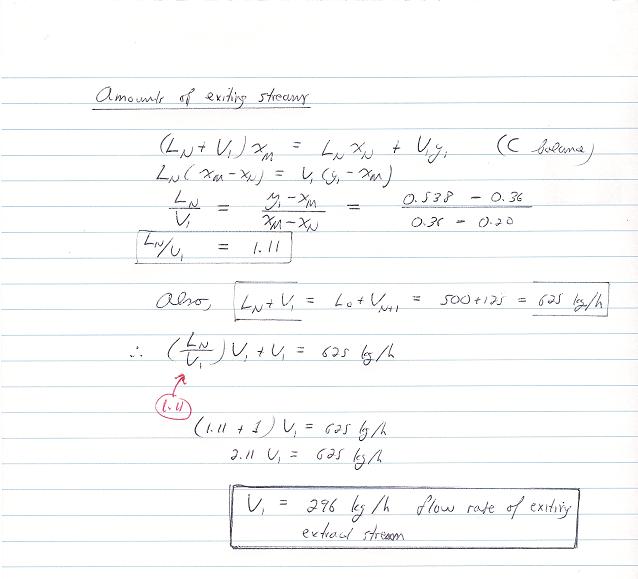 Amounts of exiting streams
(L_N + V_1) x_M = L_N x_N + V_1 y_1 (C balance)
L_N (x_M - x_N) = V_1 (y_1 - x_M)
L_N / V_1 = (y_1 - x_M) / (x_M - x_N) = (0.538 - 0.36) / (0.36 - 0.20)
L_N/V_1 = 1.11
Also, L_N + V_1 = L_0 + V_{N+1} = 500 + 125 = 625 kg/h
∴ (L_N / V_1) V_1 + V_1 = 625 kg/h
1.11
(1.11 + 1) V_1 = 625 kg/h
2.11 V_1 = 625 kg/h
V_1 = 296 kg/h flow rate of exiting
extract stream